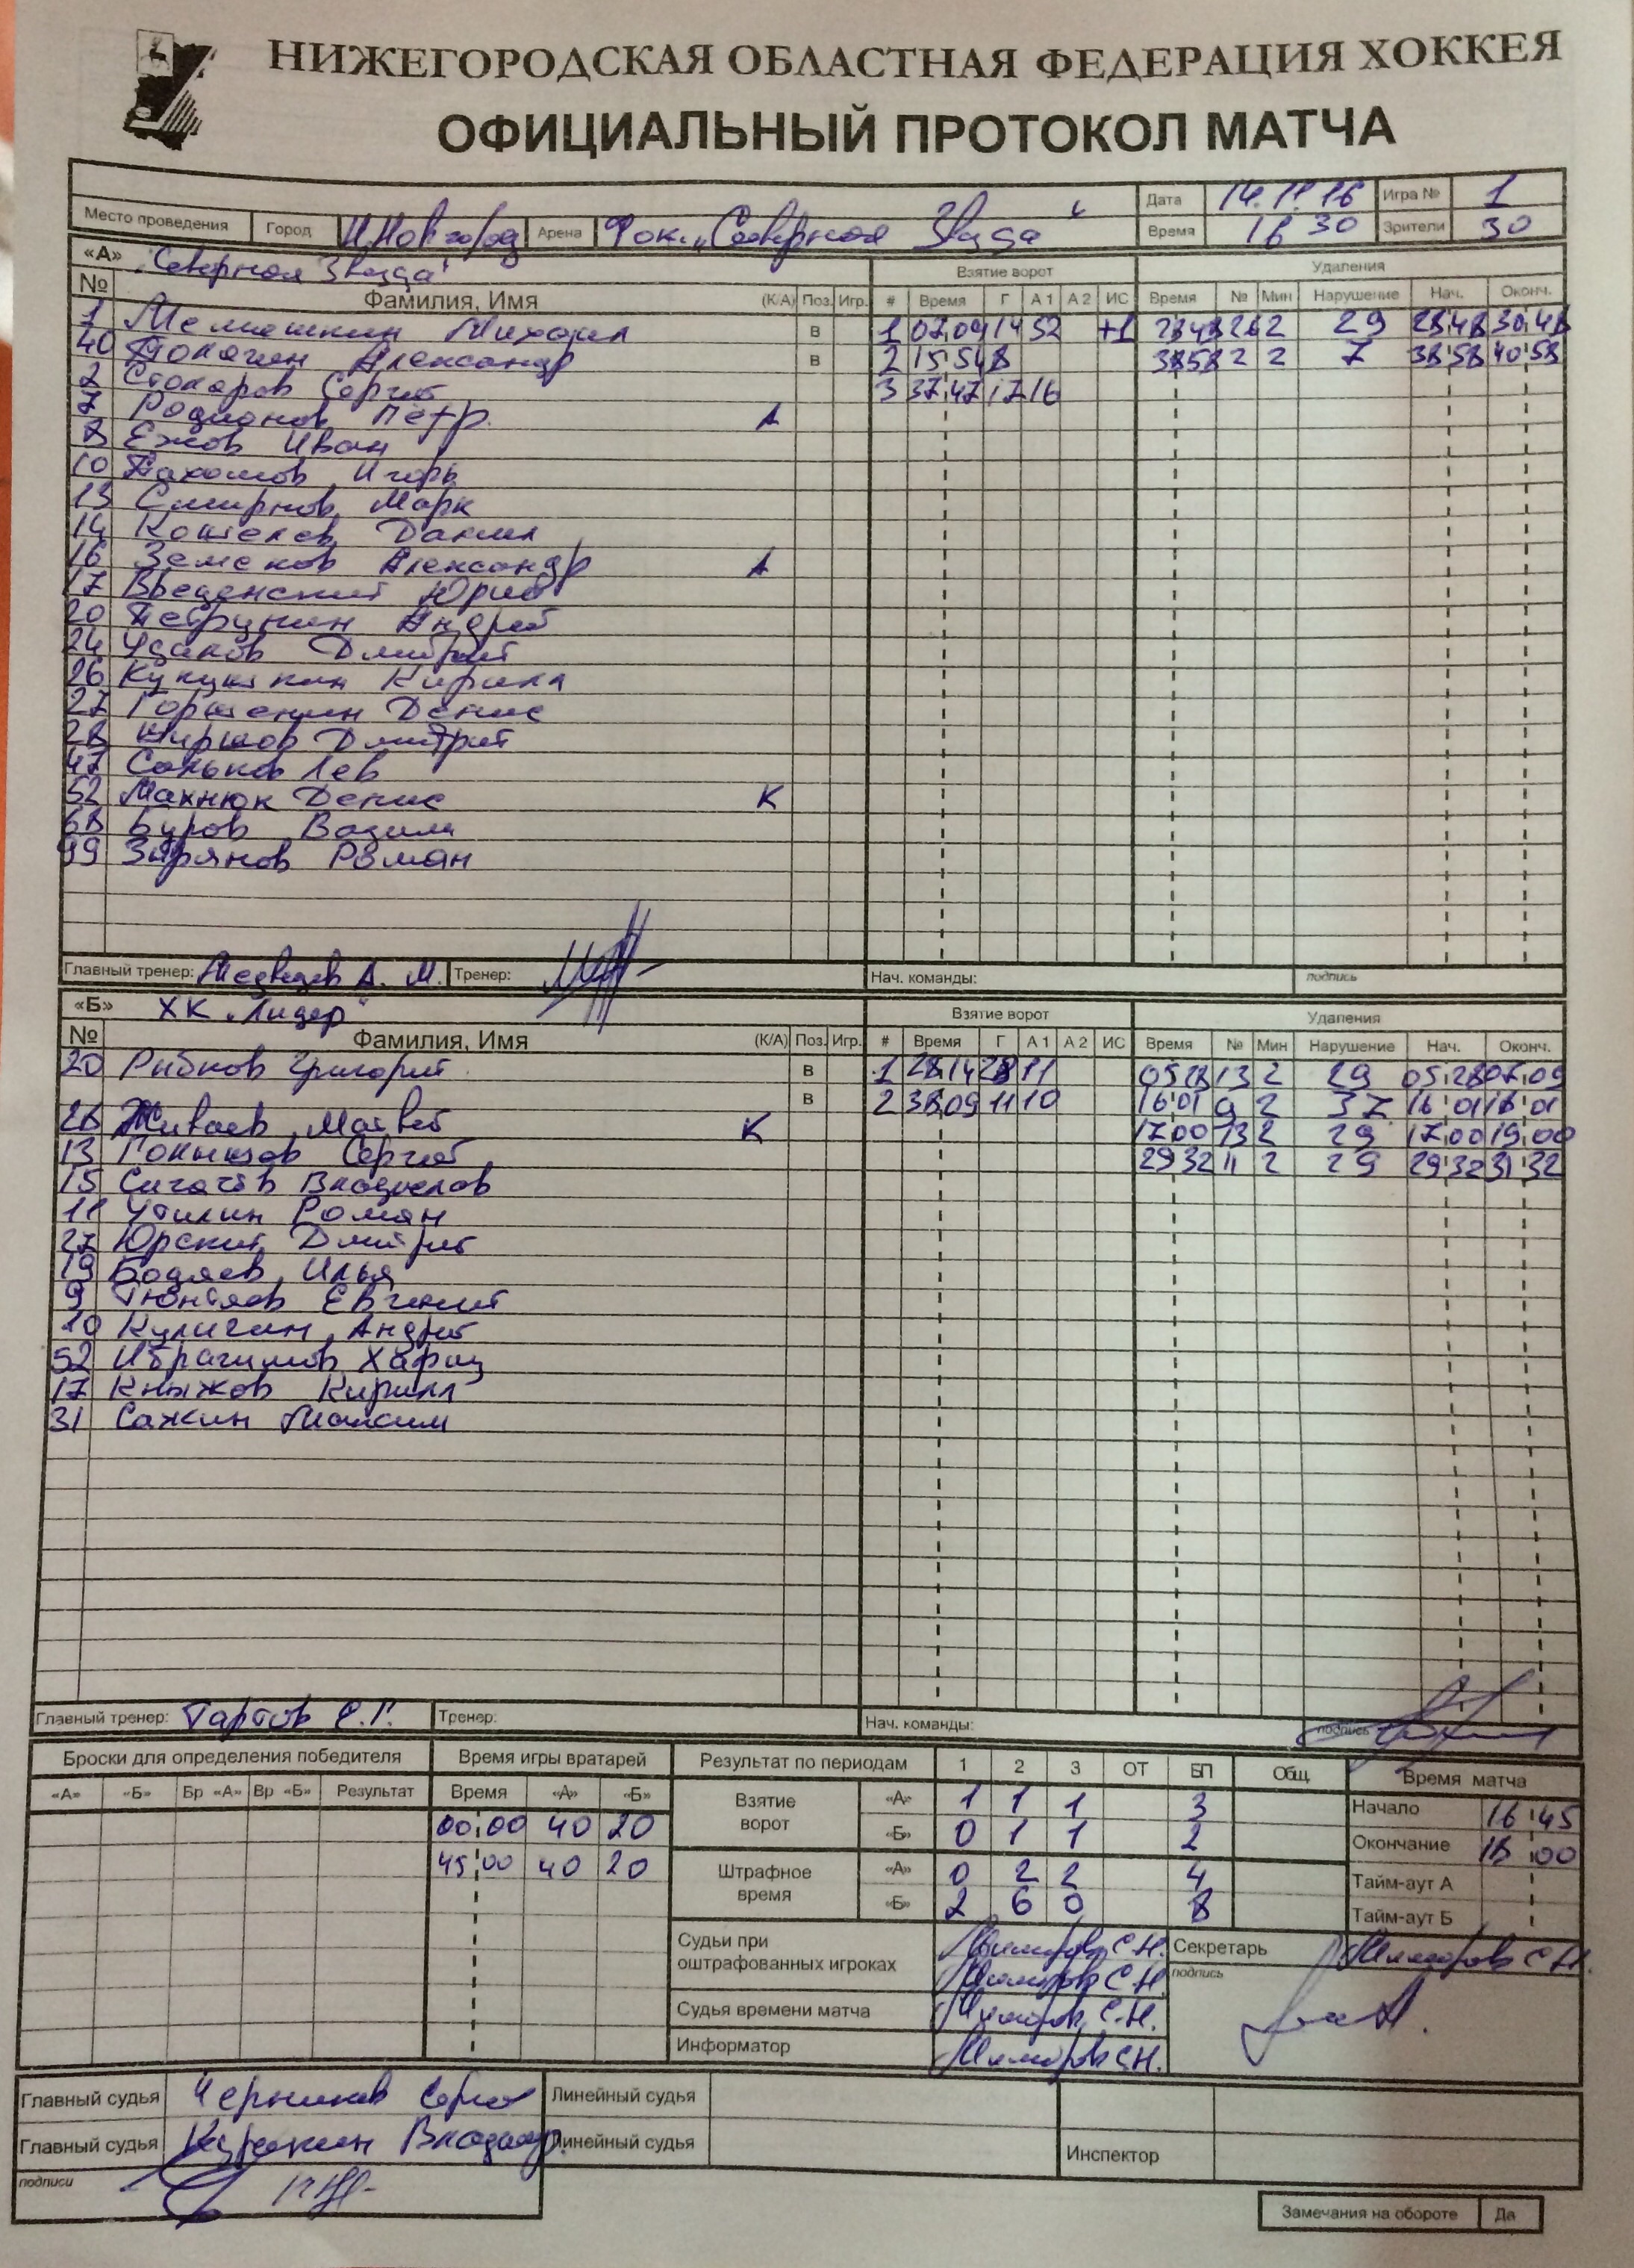 НИЖЕГОРОДСКАЯ ОБЛАСТНАЯ ФЕДЕРАЦИЯ ХОККЕЯ
ОФИЦИАЛЬНЫЙ ПРОТОКОЛ МАТЧА
Дата 14.11.16 Игра № 1
Место проведения Город Н.Новгород Арена Фок „Северная Звезда“ Время 16 30 Зрители 30
«А» „Северная Звезда“ Взятие ворот Удаления
№ Фамилия, Имя (К/А) Поз. Игр. # Время Г А1 А2 ИС Время № Мин Нарушение Нач. Оконч.
1 Мелюшкин Михаил в 1 07 09 14 52 +1 28 48 26 2 29 28 48 30 48
40 Александр в 2 15 54 8 38 58 2 2 7 38 58 40 58
2 Столяров Сергей 3 37 47 17 16
7 Родионов Пётр А
8 Ежов Иван
10 Пахомов Игорь
13 Смирнов Марк
14 Кошелев Данил
16 Земсков Александр А
17 Введенский Юрий
20 Петрунин Андрей
24 Удалов Дмитрий
26 Кукушкин Кирилл
27 Горшенин Денис
28 Ширшов Дмитрий
47 Сальков Лев
52 Махнюк Денис К
68 Буров Вадим
99 Зырянов Роман
Главный тренер: Медведев А. М. Тренер: Нач. команды: подпись
«Б» ХК „Лидер“ Взятие ворот Удаления
№ Фамилия, Имя (К/А) Поз. Игр. # Время Г А1 А2 ИС Время № Мин Нарушение Нач. Оконч.
20 Рыбков Григорий в 1 28 14 28 11 05 28 13 2 29 05 28 07 09
в 2 38 09 11 10 16 01 9 2 37 16 01 18 01
28 Живаев Матвей К 17 00 13 2 29 17 00 19 00
13 Голышов Сергей 29 32 11 2 29 29 32 31 32
15 Сигачёв Владислав
11 Утилин Роман
27 Юрский Дмитрий
19 Бодяев Илья
9 Тюнтяев Евгений
10 Кулигин Андрей
52 Ибрагимов Хафиз
17 Кныжов Кирилл
31 Сажин Максим
Главный тренер: Тартов С.Г. Тренер: Нач. команды: подпись
Броски для определения победителя Время игры вратарей Результат по периодам 1 2 3 ОТ БП Общ. Время матча
«А» «Б» Вр «А» Вр «Б» Результат Время «А» «Б» Взятие ворот «А» 1 1 1 3 Начало 16 45
00 00 40 20 «Б» 0 1 1 2 Окончание 18 00
45 00 40 20 Штрафное время «А» 0 2 2 4 Тайм-аут А
«Б» 2 6 0 8 Тайм-аут Б
Судьи при оштрафованных игроках С.Н. Секретарь С.Н.
С.Н. подпись
Судья времени матча С.Н.
Информатор С.Н.
Главный судья Черников Сергей Линейный судья
Главный судья Куракин Владимир Линейный судья Инспектор
подписи
Замечания на обороте Да